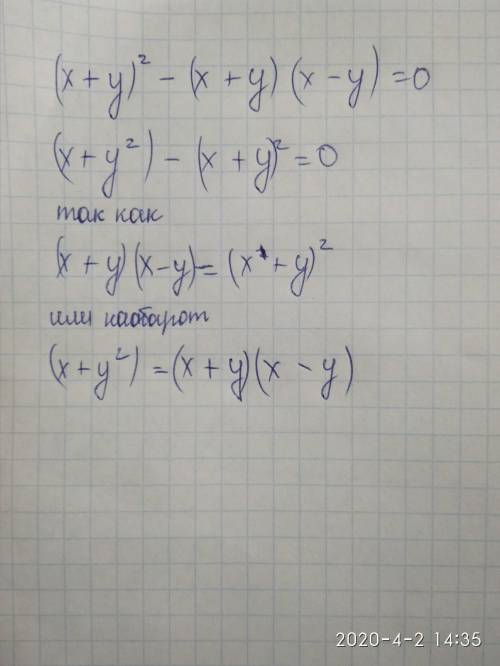 (x + y)² − (x + y) (x − y) = 0
(x + y²) − (x + y)² = 0
так как
(x + y) (x − y) = (x + y)²
или наоборот
(x + y²) = (x + y) (x − y)
2020-4-2 14:35